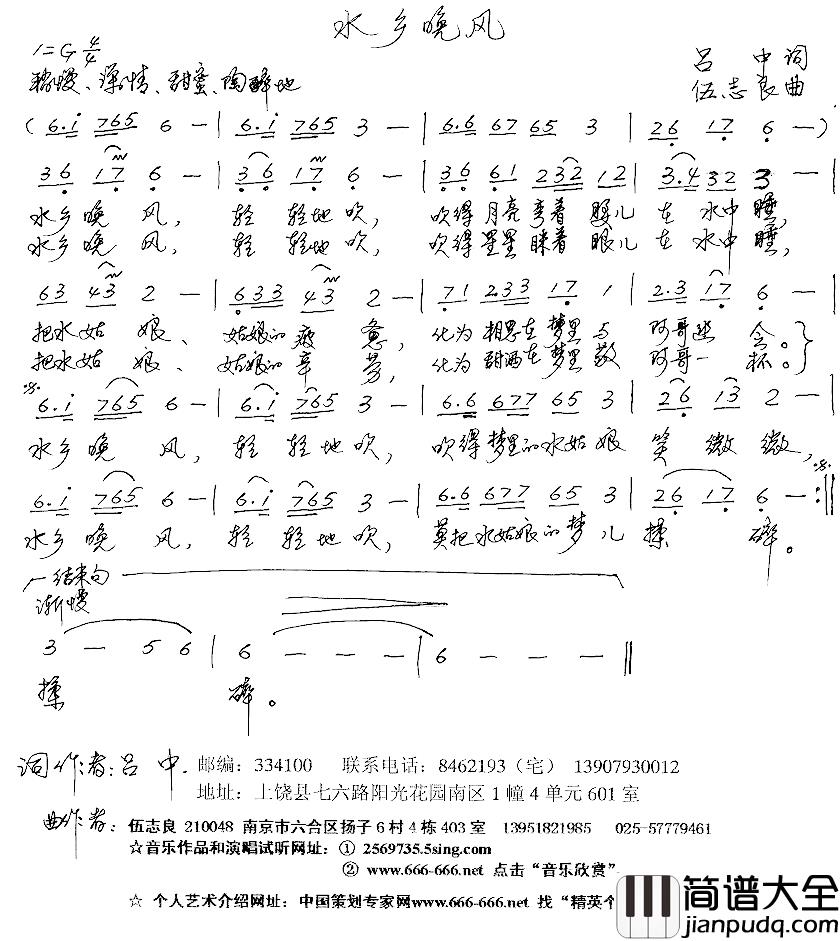 水乡晚风
1=G 4/4
吕 中 词
稍慢、深情、甜蜜、陶醉地
伍志良 曲
( 6.i 765 6 — | 6.i 765 3 — | 6.6 67 65 3 | 26 17 6 — )
36 17 6 — | 36 17 6 — | 36 61 232 12 | 3.4 32 3 — |
水乡晚 风, 轻 轻地吹, 吹得月亮弯着 腰儿 在 水中睡,
水乡晚 风, 轻 轻地吹, 吹得星星眯着 眼儿 在 水中睡,
63 43 2 — | 633 43 2 — | 71 233 17 1 | 2.3 17 6 — |
把水姑 娘、 姑娘的疲 惫, 化为 相思在梦里与 阿哥 会。
把水姑 娘、 姑娘的辛 劳, 化为 甜酒在梦里敬 阿哥一 杯。
6.i 765 6 — | 6.i 765 3 — | 6.6 677 65 3 | 26 13 2 — |
水乡晚 风, 轻 轻地吹, 吹得梦里的水姑 娘 笑 微 微,
6.i 765 6 — | 6.i 765 3 — | 6.6 677 65 3 | 26 17 6 — :||
水乡 晚 风, 轻 轻地吹, 莫把水姑娘的梦 儿 揉 碎。
结束句
渐慢
3 — 5 6 | 6 — — — | 6 — — — ||
揉 碎。
词作者:吕 中. 邮编：334100 联系电话：8462193（宅） 13907930012
地址：上饶县七六路阳光花园南区1幢4单元601室
曲作者: 伍志良 210048 南京市六合区扬子6村4栋403室 13951821985 025-57779461
☆音乐作品和演唱试听网址：① 2569735.5sing.com
② www.666-666.net 点击“音乐欣赏”
☆ 个人艺术介绍网址：中国策划专家网www.666-666.net 找“精英个
简谱大全
jianpudq.com